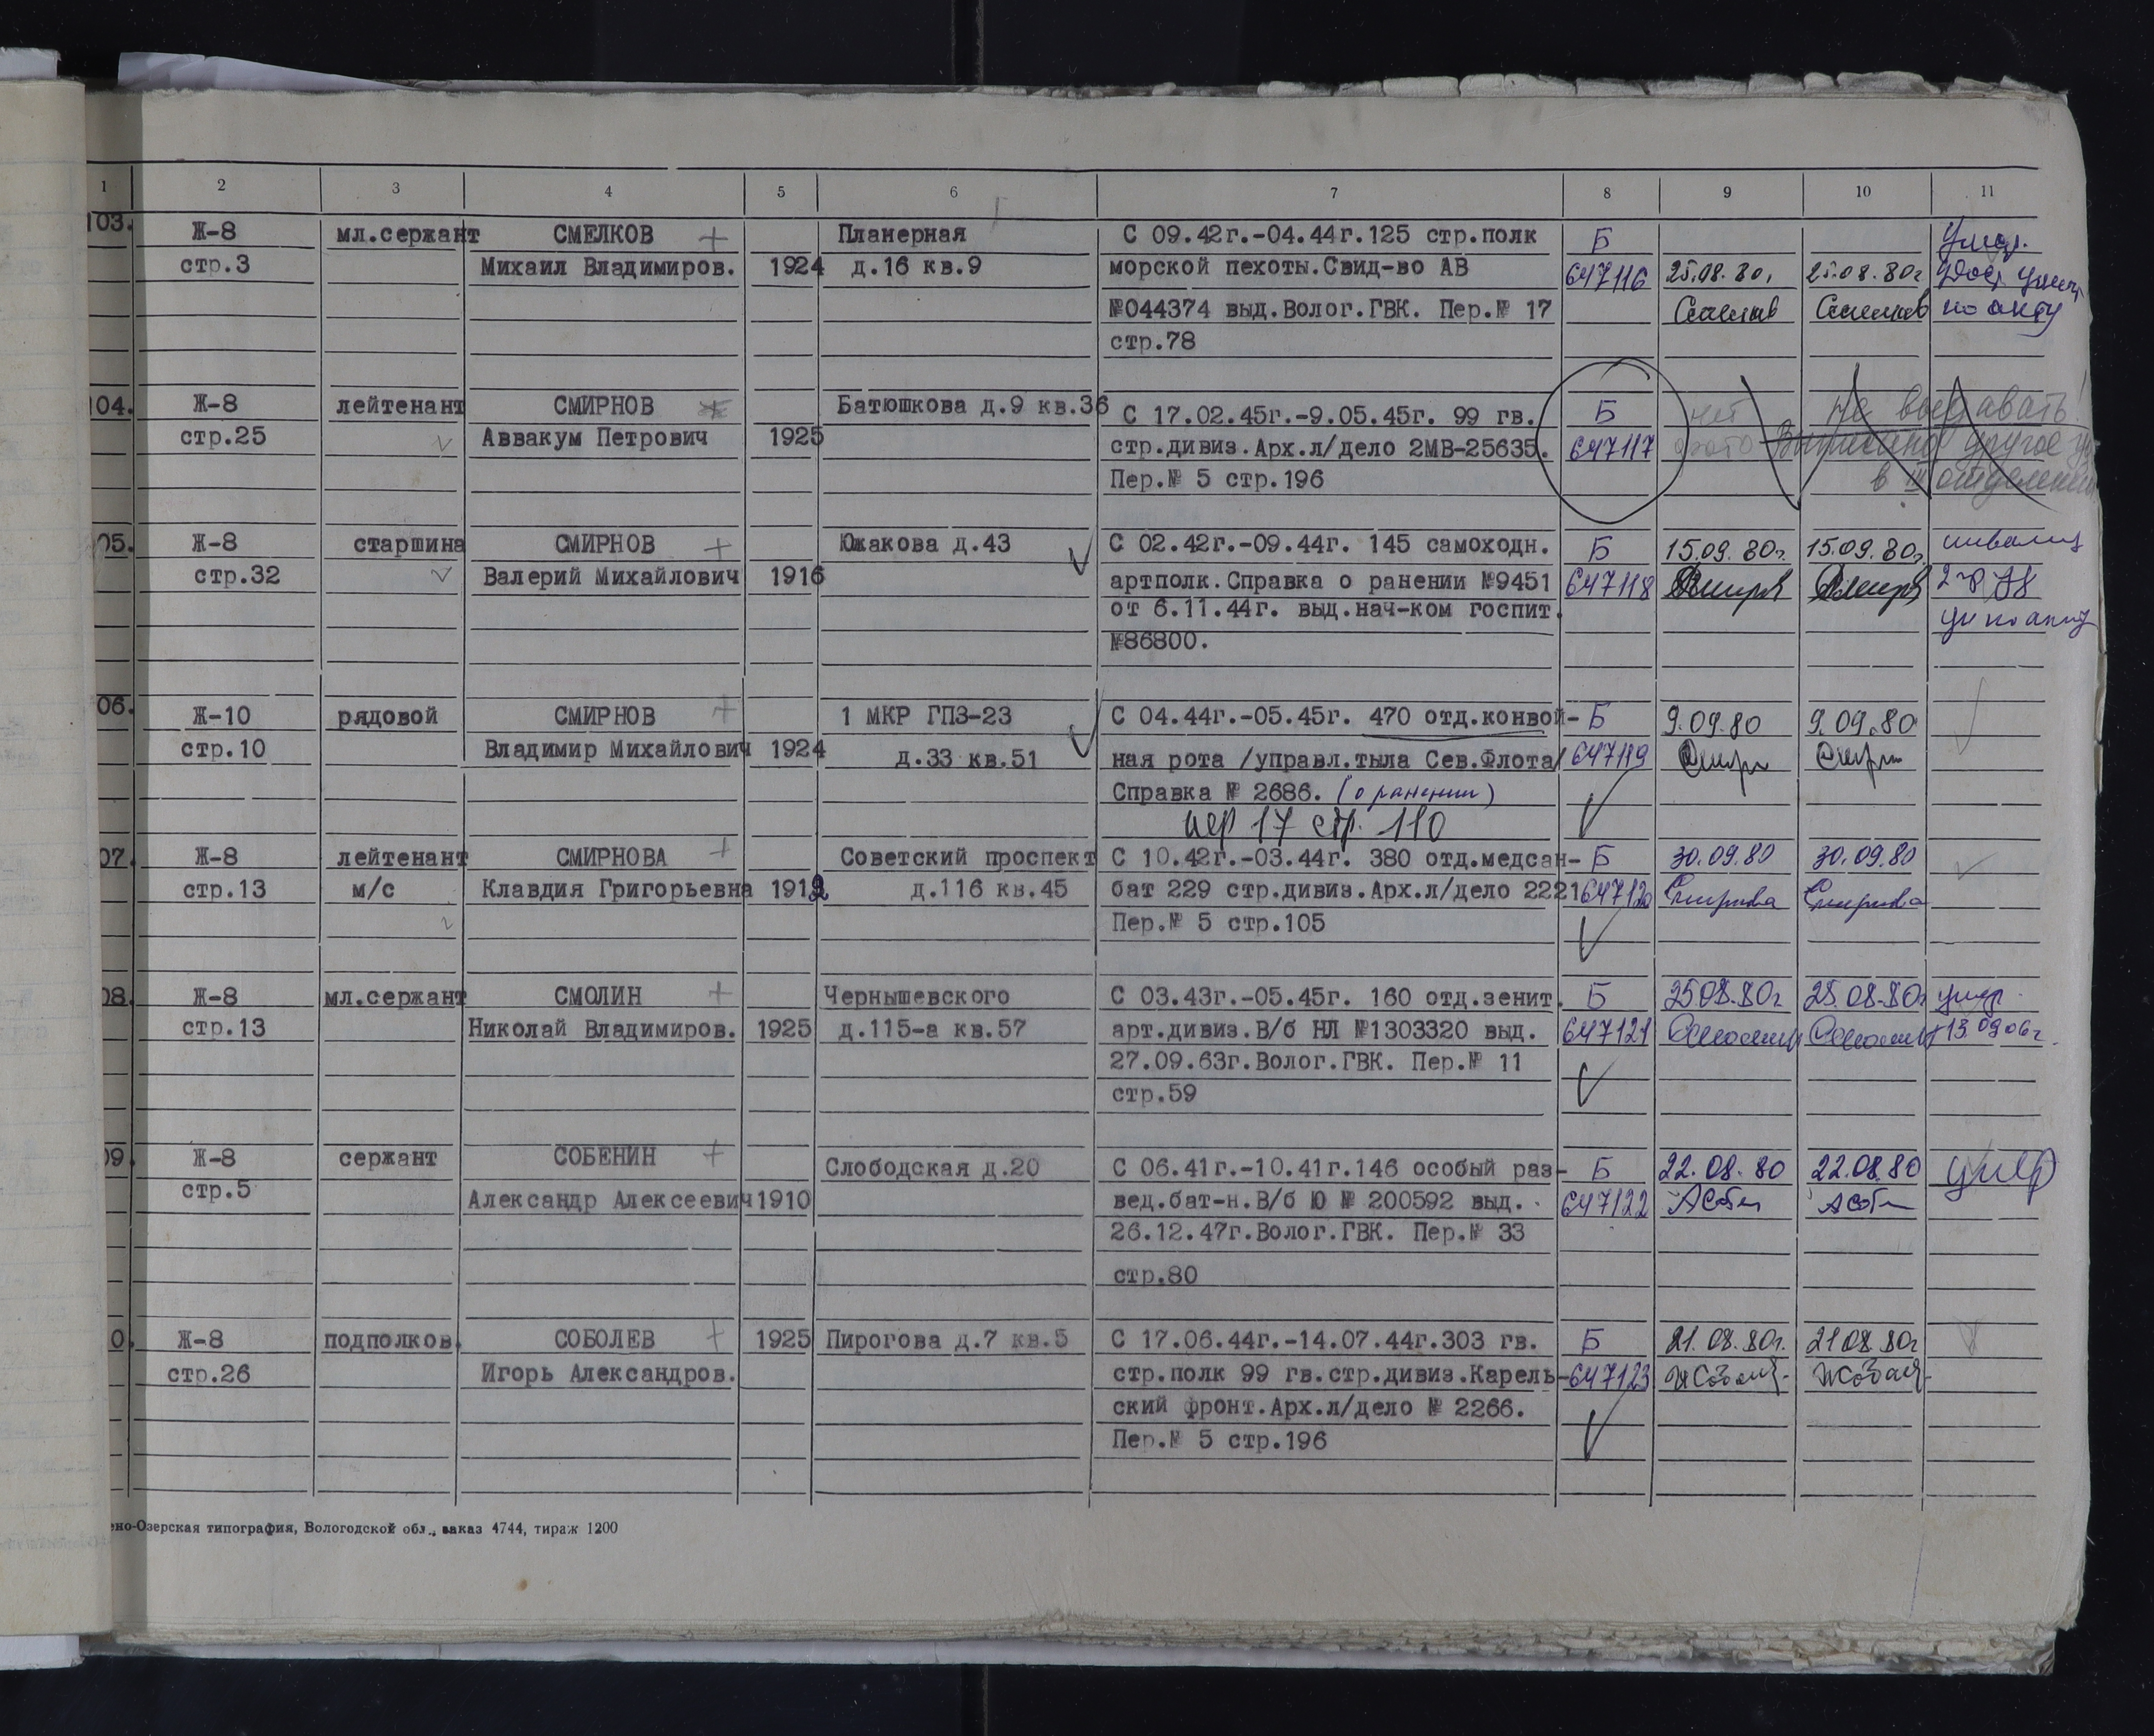 1 2 3 4 5 6 7 8 9 10 11
103. Ж-8 мл.сержант СМЕЛКОВ + Планерная С 09.42г.-04.44г.125 стр.полк Б
стр.3 Михаил Владимиров. 1924 д.16 кв.9 морской пехоты.Свид-во АВ 647116 25.08.80г 25.08.80г
№044374 выд.Волог.ГВК. Пер.№ 17 по акту
стр.78
04. Ж-8 лейтенант СМИРНОВ Батюшкова д.9 кв.36 С 17.02.45г.-9.05.45г. 99 гв. Б нет не выдавать!
стр.25 Аввакум Петрович 1925 стр.дивиз.Арх.л/дело 2МВ-25635. 647117 фото Выписано другое
Пер.№ 5 стр.196 в III отделении
05. Ж-8 старшина СМИРНОВ + Южакова д.43 С 02.42г.-09.44г. 145 самоходн. Б 15.09.80г. 15.09.80г. инвалид
стр.32 Валерий Михайлович 1916 артполк.Справка о ранении №9451 647118
от 6.11.44г. выд.нач-ком госпит.
№86800.
06. Ж-10 рядовой СМИРНОВ + 1 МКР ГПЗ-23 С 04.44г.-05.45г. 470 отд.конвой- Б 9.09.80 9.09.80
стр.10 Владимир Михайлович 1924 д.33 кв.51 ная рота /управл.тыла Сев.Флота/ 647119
Справка № 2686. (о ранении)
пер 17 стр. 110
07. Ж-8 лейтенант СМИРНОВА + Советский проспект С 10.42г.-03.44г. 380 отд.медсан- Б 30.09.80 30.09.80
стр.13 м/с Клавдия Григорьевна 1912 д.116 кв.45 бат 229 стр.дивиз.Арх.л/дело 2221 647120 Смирнова Смирнова
Пер.№ 5 стр.105
08. Ж-8 мл.сержант СМОЛИН + Чернышевского С 03.43г.-05.45г. 160 отд.зенит. Б 25.08.80г 25.08.80г умер.
стр.13 Николай Владимиров. 1925 д.115-а кв.57 арт.дивиз.В/б НЛ №1303320 выд. 647121 13.09.06г.
27.09.63г.Волог.ГВК. Пер.№ 11
стр.59
09. Ж-8 сержант СОБЕНИН + Слободская д.20 С 06.41г.-10.41г.146 особый раз- Б 22.08.80 22.08.80 умер
стр.5 Александр Алексеевич 1910 вед.бат-н.В/б Ю № 200592 выд. 647122
26.12.47г.Волог.ГВК. Пер.№ 33
стр.80
0. Ж-8 подполков. СОБОЛЕВ + 1925 Пирогова д.7 кв.5 С 17.06.44г.-14.07.44г.303 гв. Б 21.08.80г. 21.08.80г
стр.26 Игорь Александров. стр.полк 99 гв.стр.дивиз.Карель- 647123
ский фронт.Арх.л/дело № 2266.
Пер.№ 5 стр.196
ено-Озерская типография, Вологодской обл., заказ 4744, тираж 1200